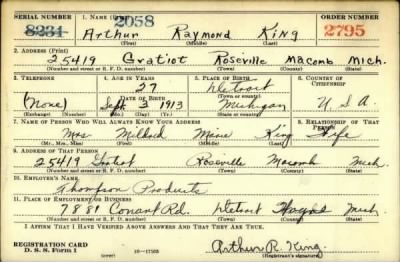 SERIAL NUMBER 1. NAME (Print) 2058 ORDER NUMBER
8231 Arthur Raymond King 2795
(First) (Middle) (Last)
2. ADDRESS (Print)
25419 Gratiot Roseville Macomb Mich.
(Number and street or R. F. D. number) (Town) (County) (State)
3. TELEPHONE 4. AGE IN YEARS 5. PLACE OF BIRTH 6. COUNTRY OF CITIZENSHIP
27 Detroit
DATE OF BIRTH (Town or county)
(None) Sept 3 1913 Michigan U. S. A.
(Exchange) (Number) (Mo.) (Day) (Yr.) (State or country)
7. NAME OF PERSON WHO WILL ALWAYS KNOW YOUR ADDRESS 8. RELATIONSHIP OF THAT PERSON
Mrs Mildred Marie King Wife
(Mr., Mrs., Miss) (First) (Middle) (Last)
9. ADDRESS OF THAT PERSON
25419 Gratiot Roseville Macomb Mich
(Number and street or R. F. D. number) (Town) (County) (State)
10. EMPLOYER'S NAME
Thompson Products
11. PLACE OF EMPLOYMENT OR BUSINESS
7881 Conant Rd. Detroit Wayne Mich
(Number and street or R. F. D. number) (Town) (County) (State)
I AFFIRM THAT I HAVE VERIFIED ABOVE ANSWERS AND THAT THEY ARE TRUE.
REGISTRATION CARD
D. S. S. Form 1 Arthur R. King